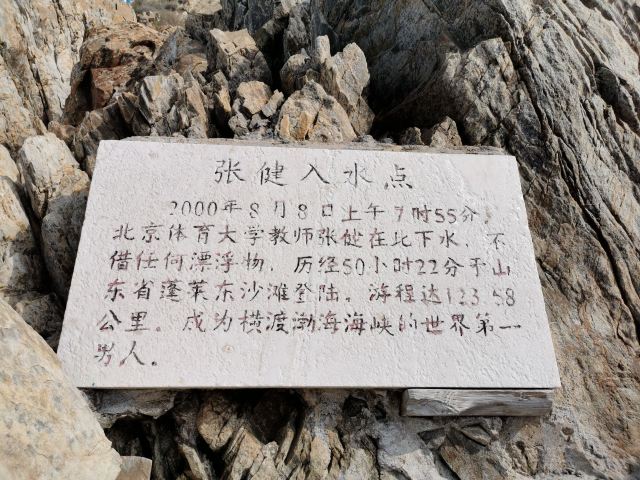 张健入水点
2000年8月8日上午7时55分，
北京体育大学教师张健在此下水，不
借任何漂浮物，历经50小时22分于山
东省蓬莱东沙滩登陆。游程达123.58
公里。成为横渡渤海海峡的世界第一
男人。